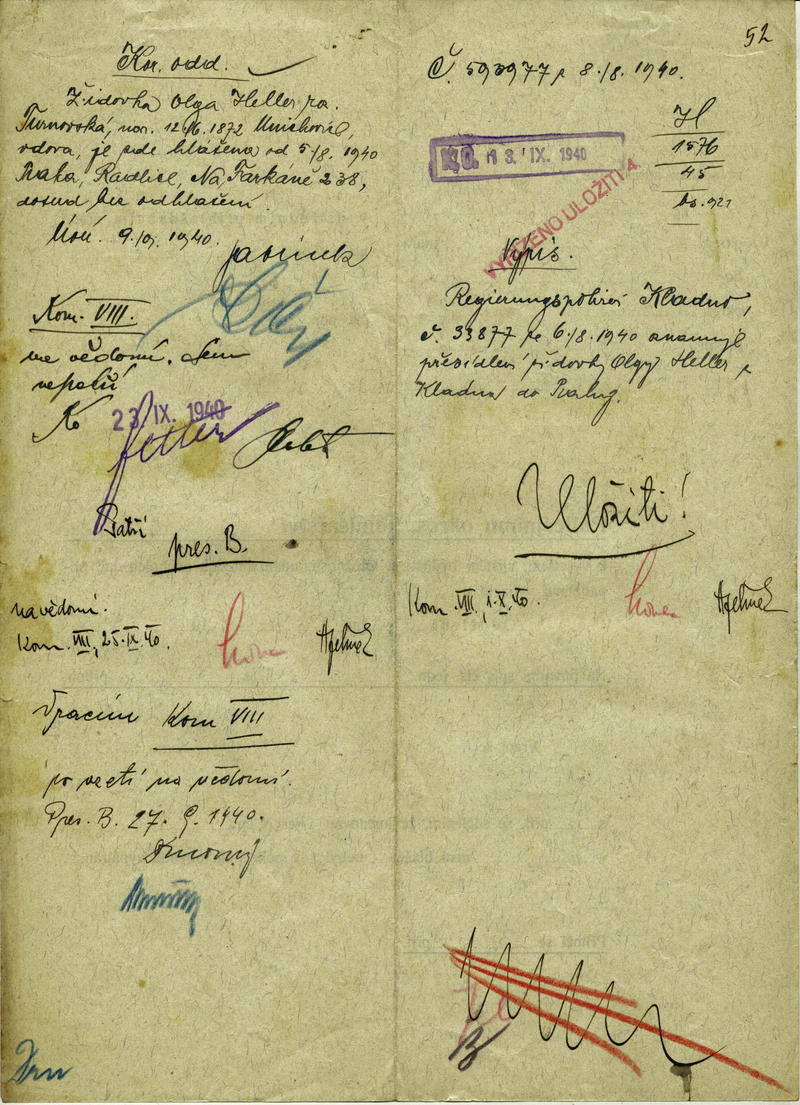 52
Kor. odd.
Židovka Olga Heller roz.
Turnovská, nar. 12./6. 1872 Unichovice,
vdova, je zde hlášena od 5./8. 1940
Praha, Radlice, Na Farkáně 238,
dosud bez odhlášení.
9./9. 1940.
Kom. VIII.
na vědomí. Sem
nepatří
23. IX. 1940
Patří
pres. B.
na vědomí.
Kom. VIII, 25.IX.40.
Vracím Kom VIII
po vzetí na vědomí.
Pres. B. 27. 9. 1940.
Č. 593977 z 8./8. 1940.
K.O. 13. IX. 1940
H
1576
45
VYŘÍZENO ULOŽITI
Výpis.
Regierungspolizei Kladno,
č. 33877 ze 6./8. 1940 oznamuje
přesídlení židovky Olgy Heller z
Kladna do Prahy.
Uložiti!
Kom. VIII, 1.X.40.
B